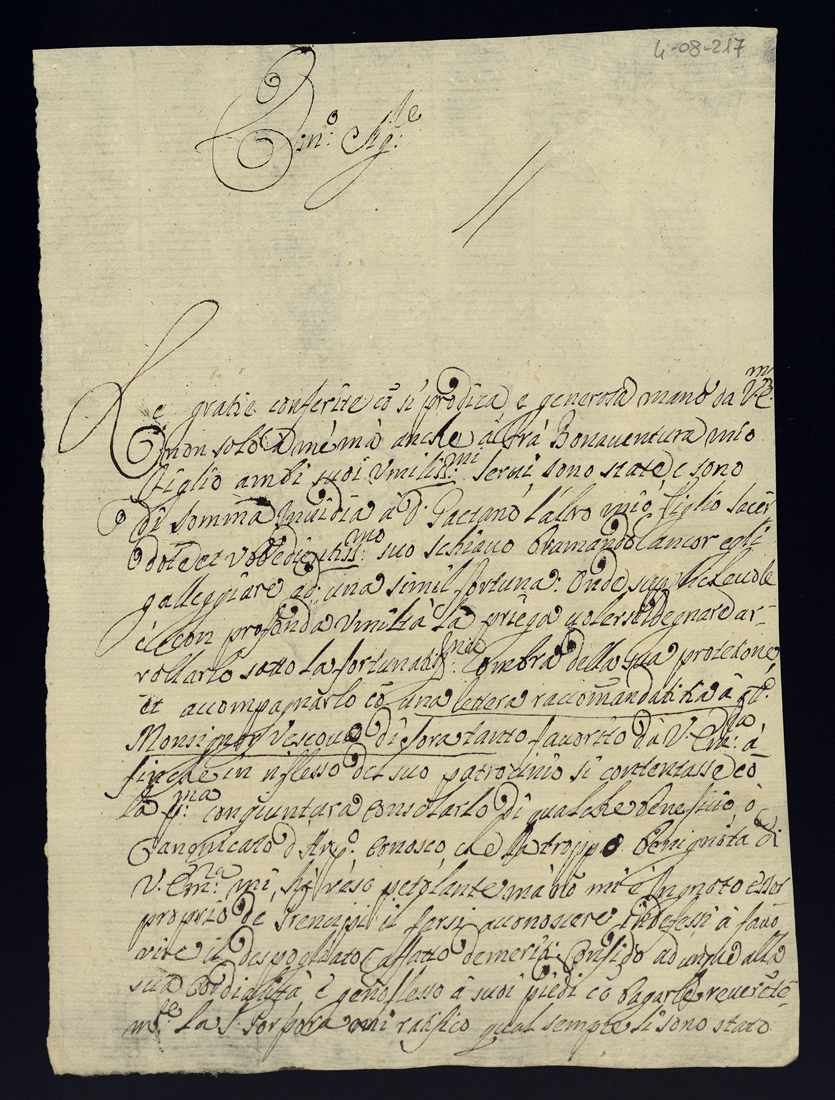 4-08-217
Em.º Sig.re
Le gratie conferite cō si prodiga e generosa mano da V. E.
non solo à me mà anche à frà Bonaventura mio
figlio ambi suoi Umiliss.mi servi sono state e sono
di somma invidia à D. Gaetano l'altro mio figlio sacer
dote et Vbbedientiss.mo suo schiavo bramando ancor egli
galleggiare ad una simil fortuna: Onde supplichevole
e con profonda Umiltà la priega volersi degnare ar-
rollarlo sotto la fortunatiss.ma ombra della sua protetione
et accompagnarlo cō una lettera raccomandatitia à
Monsignor Vescovo di Sora tanto favorito da V. Em.za à
finche in riflesso del suo patrocinio si contentasse cō
la p.ma congiuntura consolarlo di qualche beneficio ò
Canonicato d'Arp.º Conosco, che la troppo benignità di
V. Em.za mi fà reso petolante mà nō mi è Ingnoto esser
proprio de Prencipi il farsi conoscere indefessi à favo
rire il despogliato affatto de meriti. Confido adunque alla
sua Cordialità e genoflesso à suoi piedi cō bagarle reverēte-
m.te la S. Porpora mi ratifico qual sempre li sono stato